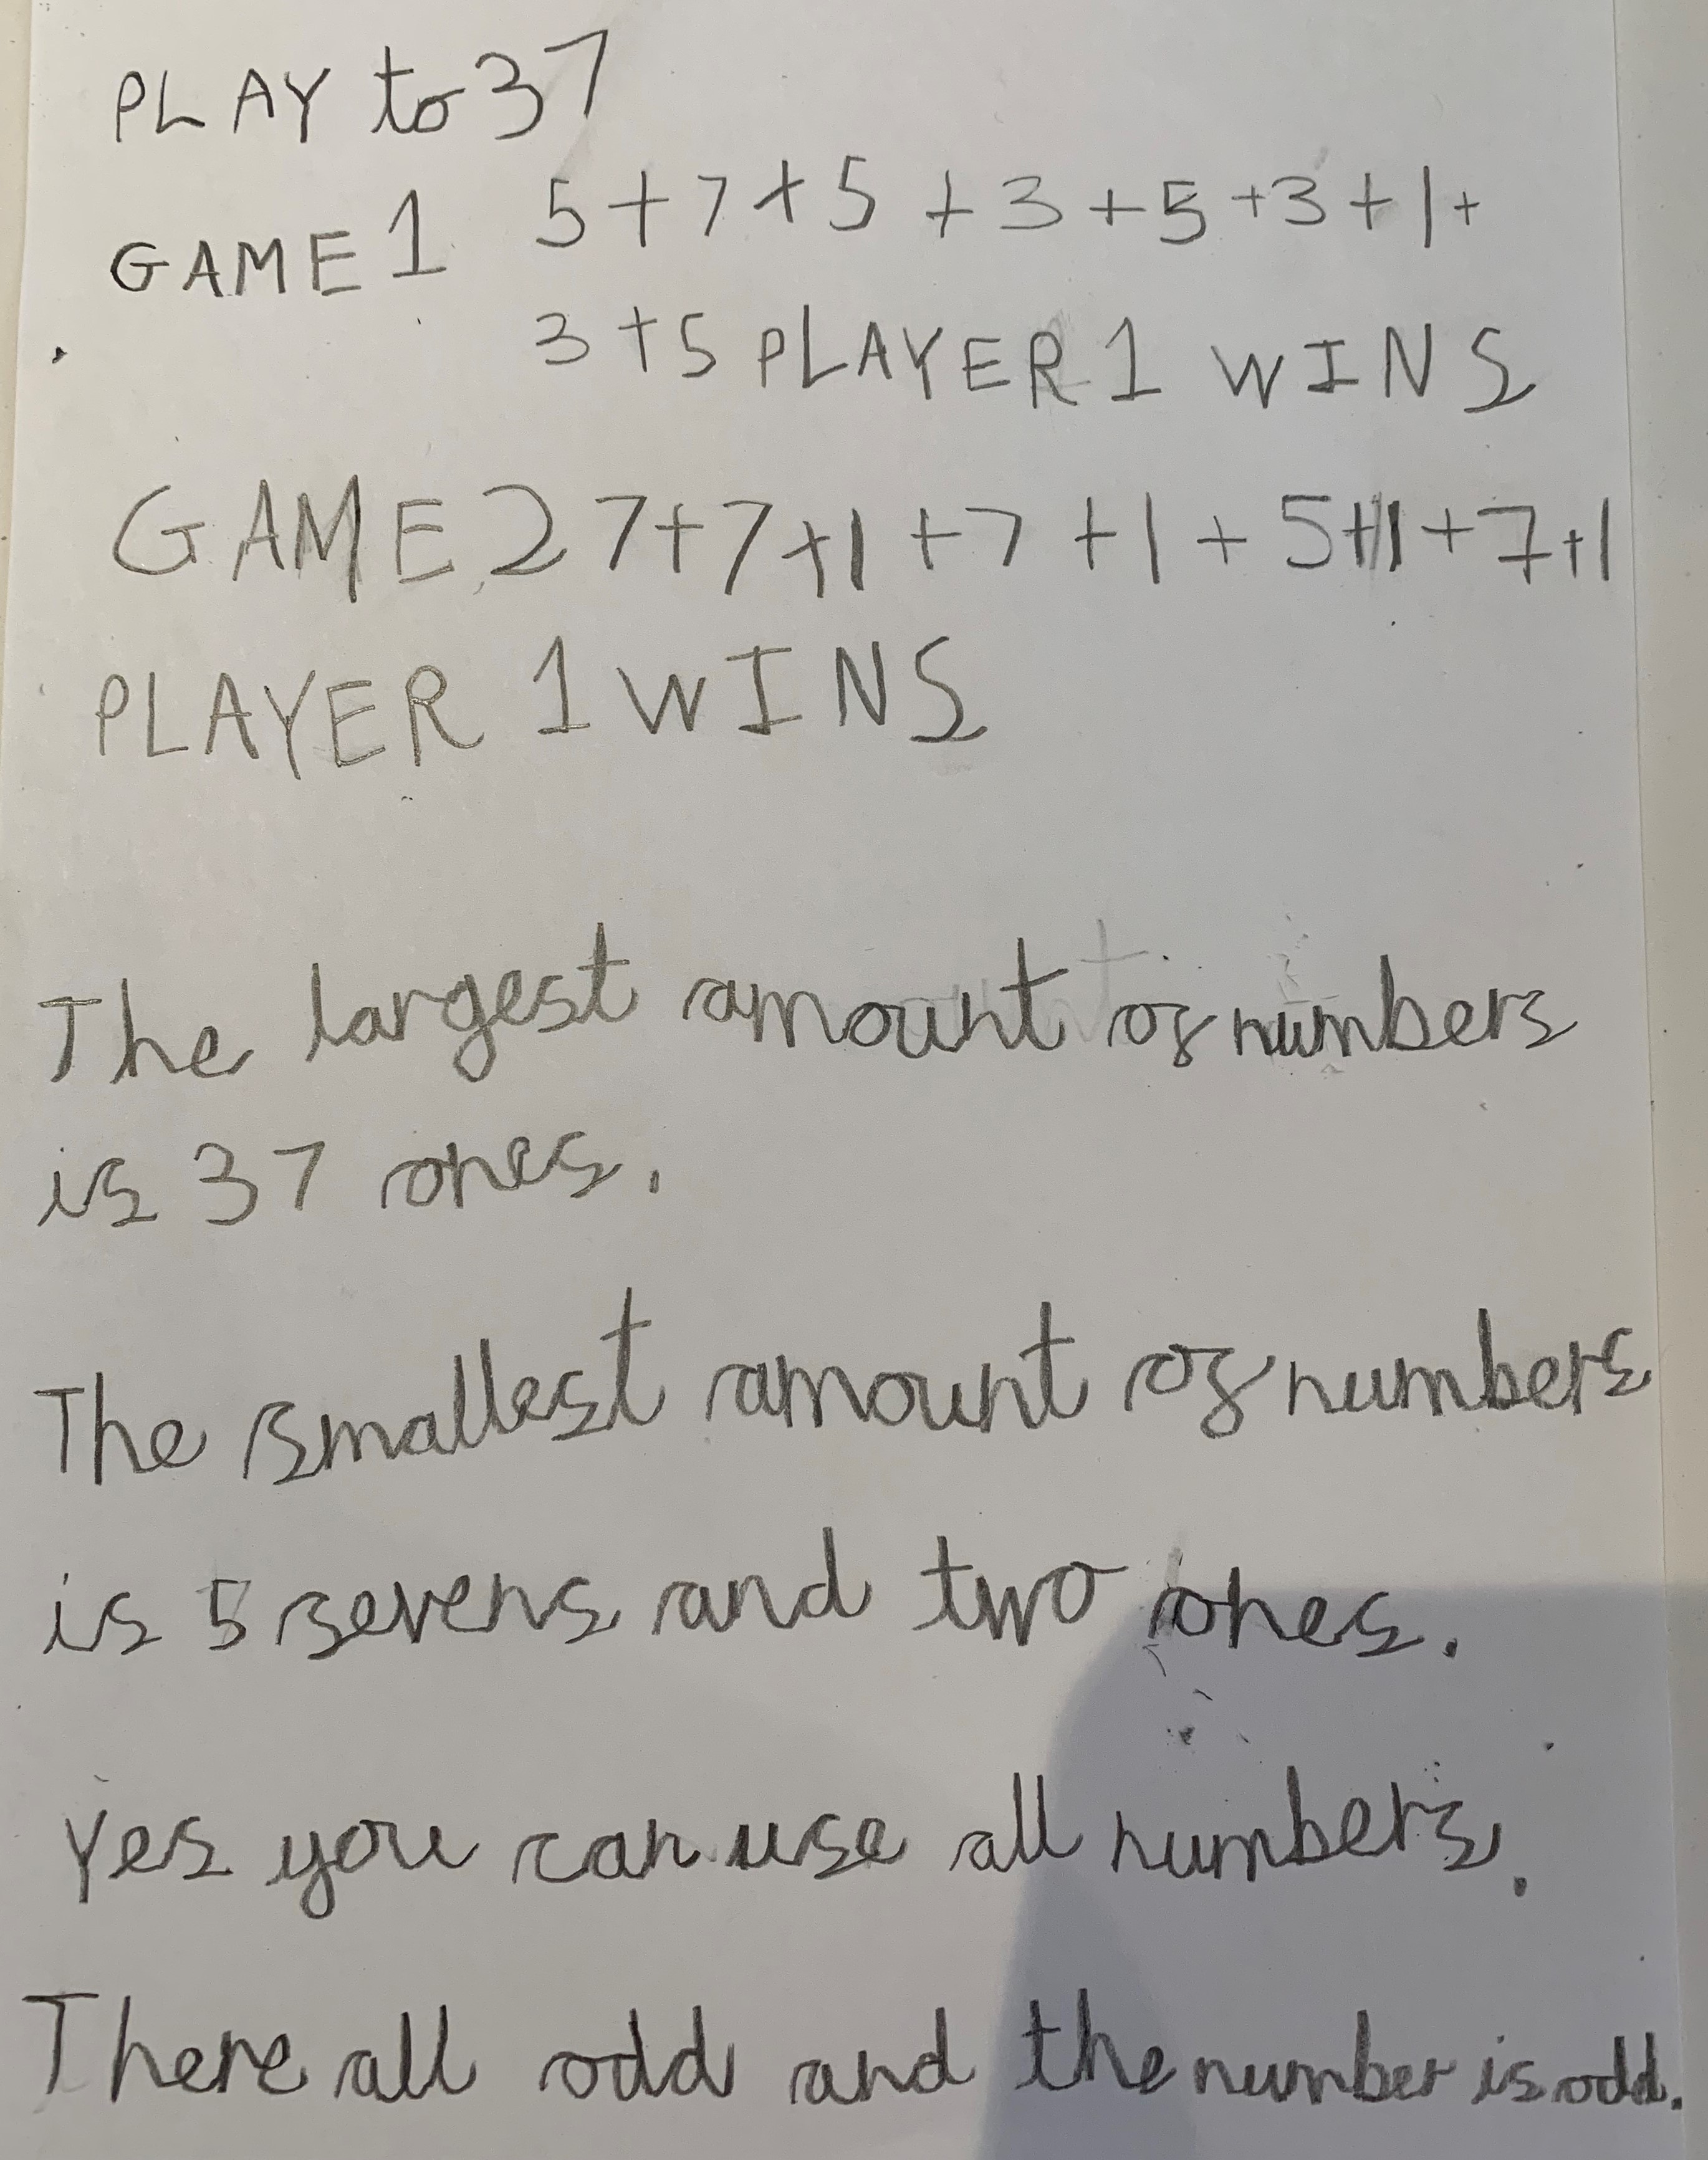 PLAY to 37
GAME 1 5+7+5+3+5+3+1+
3+5 PLAYER 1 WINS
GAME 2 7+7+1+7+1+5+1+7+1
PLAYER 1 WINS
The largest amount of numbers
is 37 ones.
The smallest amount of numbers
is 5 sevens and two ones.
Yes you can use all numbers.
There all odd and the number is odd.